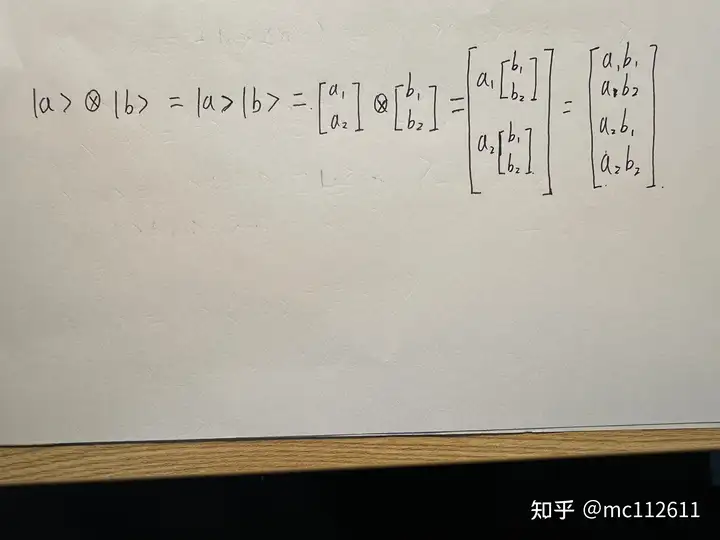 |a> ⊗ |b> = |a>|b> = [a₁ a₂] ⊗ [b₁ b₂] = [a₁[b₁ b₂] a₂[b₁ b₂]] = [a₁b₁ a₁b₂ a₂b₁ a₂b₂]
知乎 @mc112611